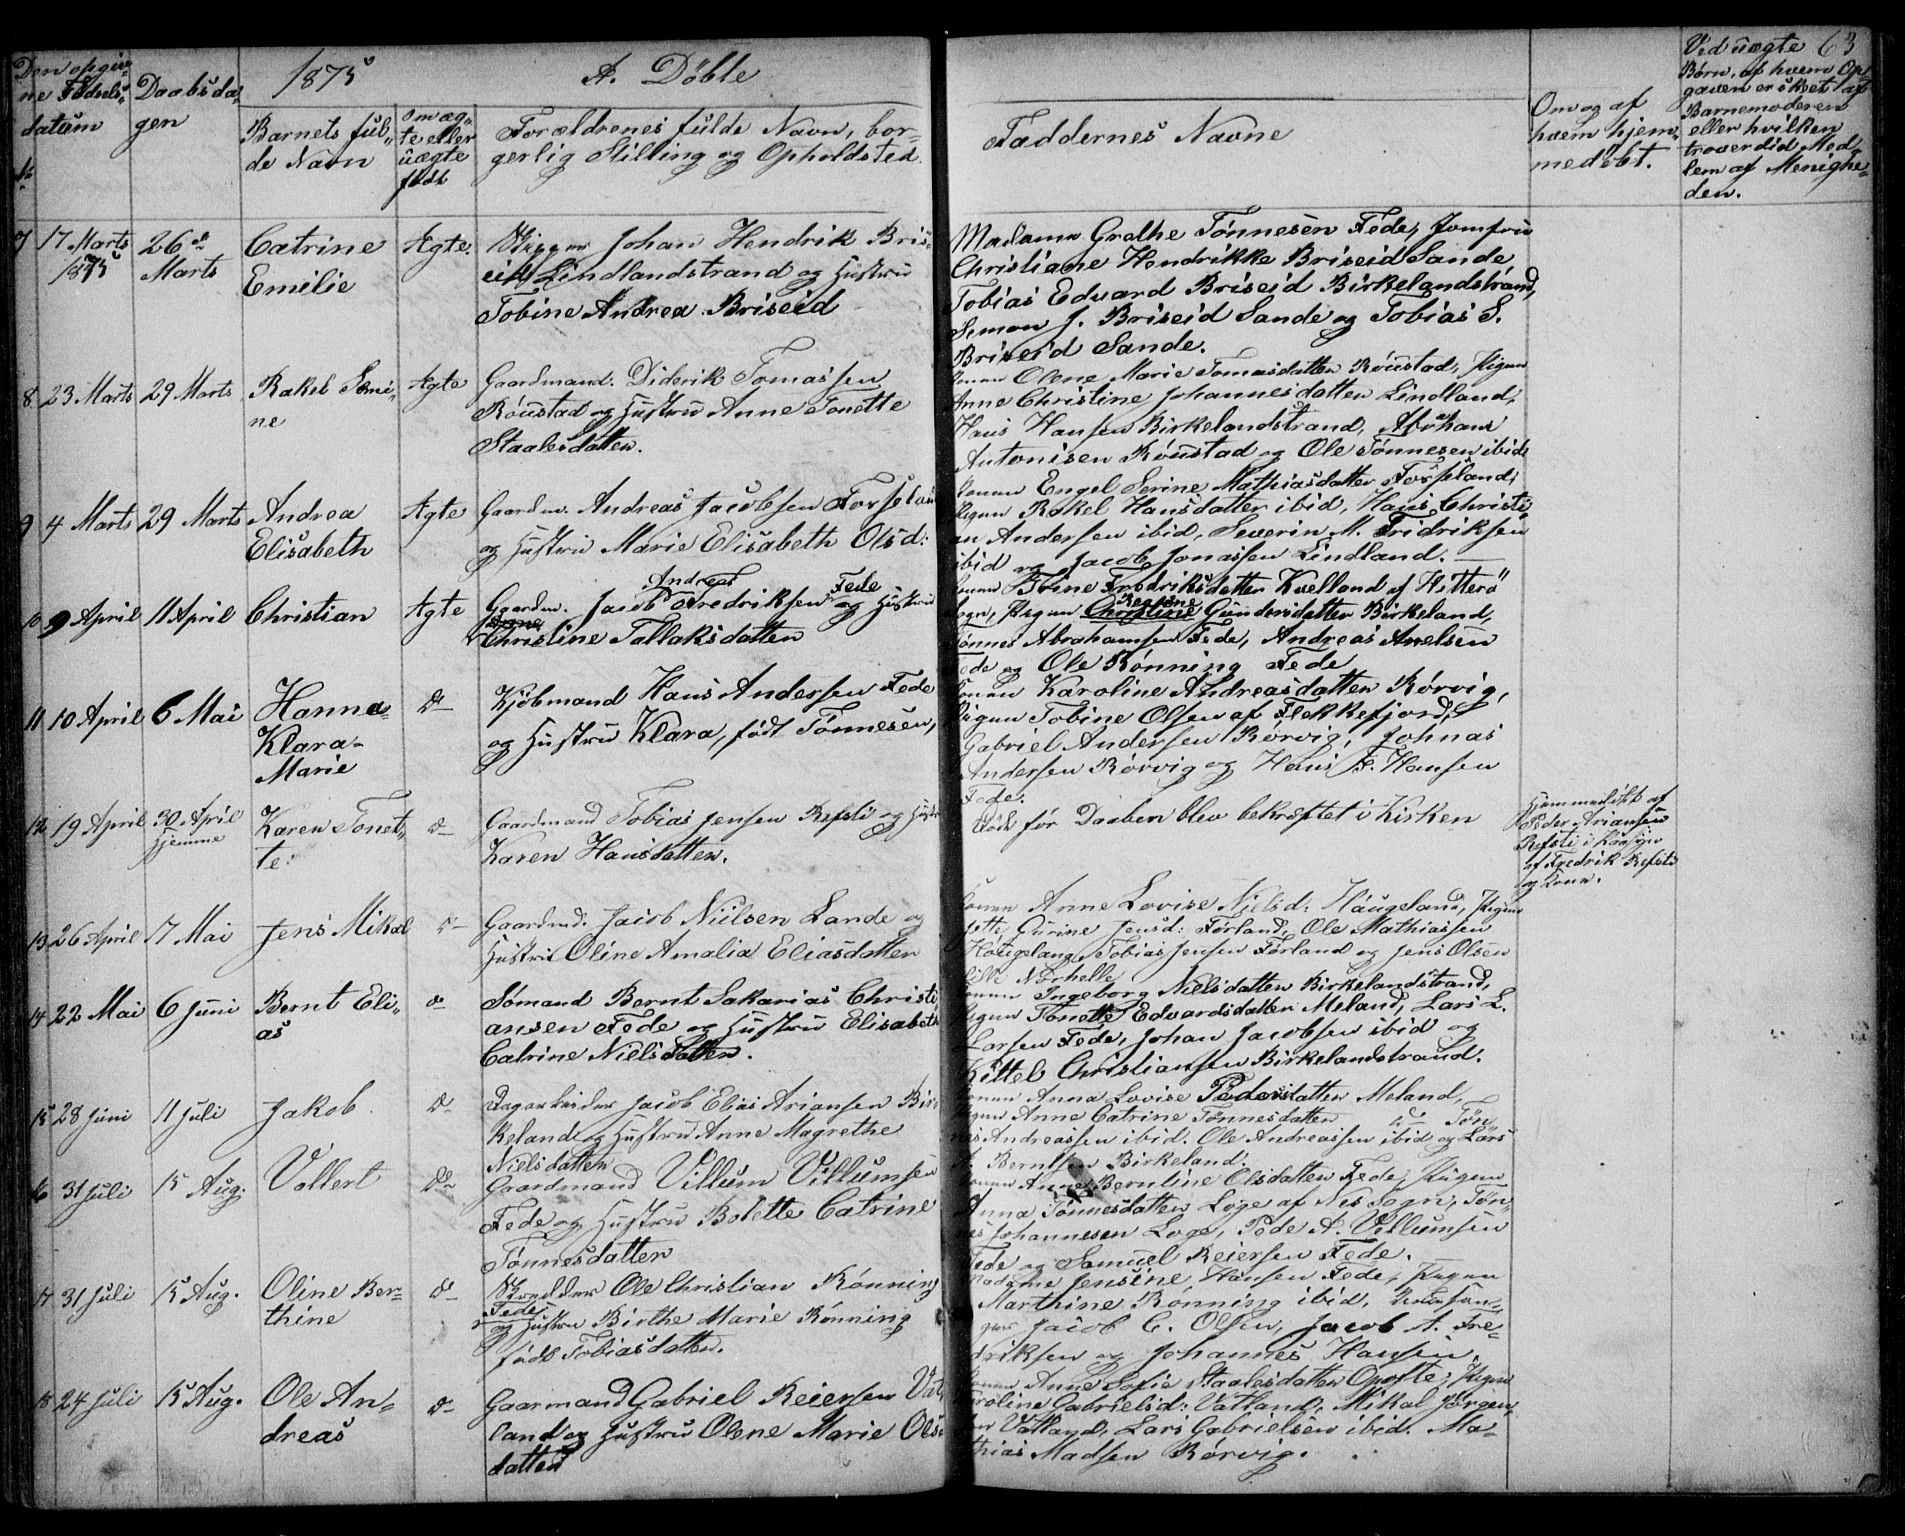 1875
A. Döble
63
Den opgiv-
ne Födsels-
datum
№
Daabsda-
gen
Barnets ful-
de Navn
Om æg-
te eller
uægte
født
Forældrenes fulde Navn, bor-
gerlig Stilling og Opholdsted
Faddernes Navne
Om og af
hvem hjem-
medøbt.
Ved uægte
Börn, af hvem Op-
gaven er skeet af
Barnemoderen
eller hvilken
troverdid Med-
lem af Menighe-
den.
7 17 Marts
1875
26de
Marts
Catrine
Emilie
Ægte
Skipper Johan Hendrik Bris-
eid Lindlandstrand og Hustru
Tobine Andrea Briseid
Madame Grethe Tønnesen Fede, Jomfru
Christiane Hendrikke Briseid Sande
Tobias Eduard Briseid Birkelandstrand,
Simon J. Briseid Sande og Tobias S.
Briseid Sande.
8 23 Marts
29 Marts
Rakel Semi-
ne
Ægte
Gaardmand. Diderik Tomassen
Röustad og Hustru Anne Tonette
Staalesdatten.
Konen Olene Marie Tomasdatten Röustad, Pigen
Anne Christine Johannesdatten Lindland,
Hans Hansen Birkelandstrand, Abraham
Antonisen Röustad og Ole Tønnesen ibid
9 4 Marts
29 Marts
Andrea
Elisabeth
Ægte
Gaardm. Andreas Jacobsen Forseland
og Hustru Marie Elisabeth Olsd:
Konen Engel Serine Mathiasdatten Forseland,
Pigen Rakel Hansdatter ibid, Hans Christi-
an Andersen ibid, Severin M. Fridriksen
ibid og Jacob Jonassen Lindland.
10 9 April
11 April
Christian
Ægte
Gaardm. Jacob Andreas Fredriksen Fede og Hustru
Christine Tallaksdatten
Konen Trine Fredriksdatten Kvelland af Hitterö
Sogn, Pigen Regine Gundersdatten Birkeland,
Tønnes Abrahamsen Fede, Andreas Axelsen
Fede og Ole Rønning Fede
11 10 April
6 Mai
Hanna
Klara
Marie
Do
Kjöbmand Hans Andersen Fede
og Hustru Klara, født Tønnesen,
Konen Karoline Andreasdatten Rørvig,
Pigen Tobine Olsen af Flekkefjord,
Gabriel Andersen Rørvig, Johnas
Andersen Rørvig og Hans F. Hansen
Fede.
12 19 April
30 April
Hjemme
Karen Tonet-
te
do
Gaardmand Tobias Jensen Refsti og Hustr
Karen Hansdatten.
Död för Daaben blev bekræftet i Kirken
Hjemmedöbt af
Peder Ariansen
Refsti i Paasyn
af Fredrik Refsti
og Kone.
13 26 April
17 Mai
Jens Mikal
do
Gaardmd: Jacob Nielsen Lande og
Hustru Oline Amalia Eliasdatten
Konen Anne Lovise Nielsd: Haugeland, Pigen
Jette Gurine Jensd: Førland, Ole Mathiassen
Haugeland, Tobias Jensen Førland og Jens Olsen
Nörhelle
14 22 Mai
6 Juni
Bernt Eli-
as
do
Sømand Bernt Sakarias Christi
ansen Fede og Hustru Elisabeth
Catrine Nielsdatten.
Konen Ingeborg Nielsdatten Birkelandstrand,
Pigen Tonette Edvardsdatten Meland, Lars L.
Larsen Fede, Johan Jacobsen ibid og
Kittel Christiansen Birkelandstrand.
15 28 Juni
11 Juli
Jakob
do
Dagarbeider Jacob Elias Ariansen Bir-
keland og Hustru Anne Magrethe
Nielsdatten
Konen Anna Lovise Pedersdatten Meland,
Pigen Anne Catrine Tönnesdatten do Tön-
nes Andreassen ibid. Ole Andreassen ibid og Lars
Berntsen Birkeland.
16 31 Juli
15 Aug:
Vollert
Do
Gaardmand Villum Villumsen
Fede og Hustru Bolette Catrine
Tønnesdatten
Konen Anne Berntine Olsdatten Fede, Pigen
Anna Tønnesdatten Loge af Nes Sogn, Tøn-
nes Johannesen Loge, Peder A. Villumsen
Fede og Samuel Reiersen Fede.
17 31 Juli
15 Aug.
Oline Ber-
thine
do
Ole Christian Rønning
Fede
og Hustru Birthe Marie Rønning
født Tobiasdatten.
Madame Jensine Hansen Fede, Pigen
Marthine Rønning ibid,
Jacob C. Olsen, Jacob A. Fre-
driksen og Johannes Hansen.
18 24 Juli
15 Aug.
Ole An-
dreas
do
Gaarmand Gabriel Reiersen Vat
land og Hustru Olene Marie Ols-
datten
Konen Anne Sofie Staalesdatten Opofte, Pigen
Karoline Gabrielsd: Vatland, Mikal Jörgen-
sen Vatland, Lars Gabrielsen ibid. Ma-
thias Madsen Rørvig.